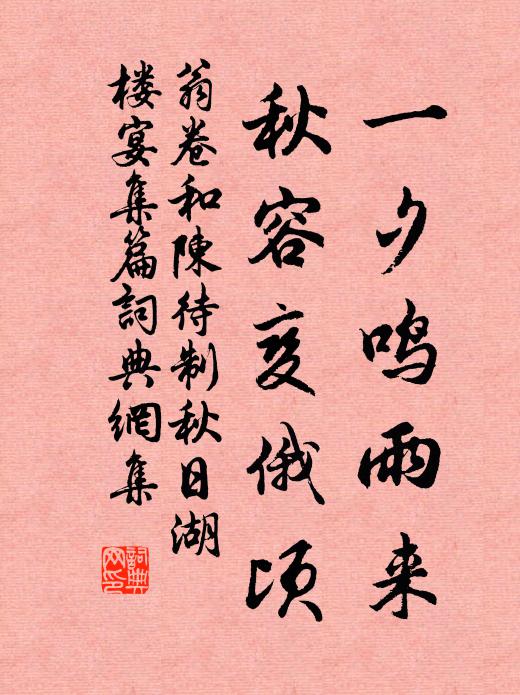 一夕鸣雨来
秋容变俄顷
翁卷和陳待制秋日湖
楼宴集篇詞典網集
詞典網印